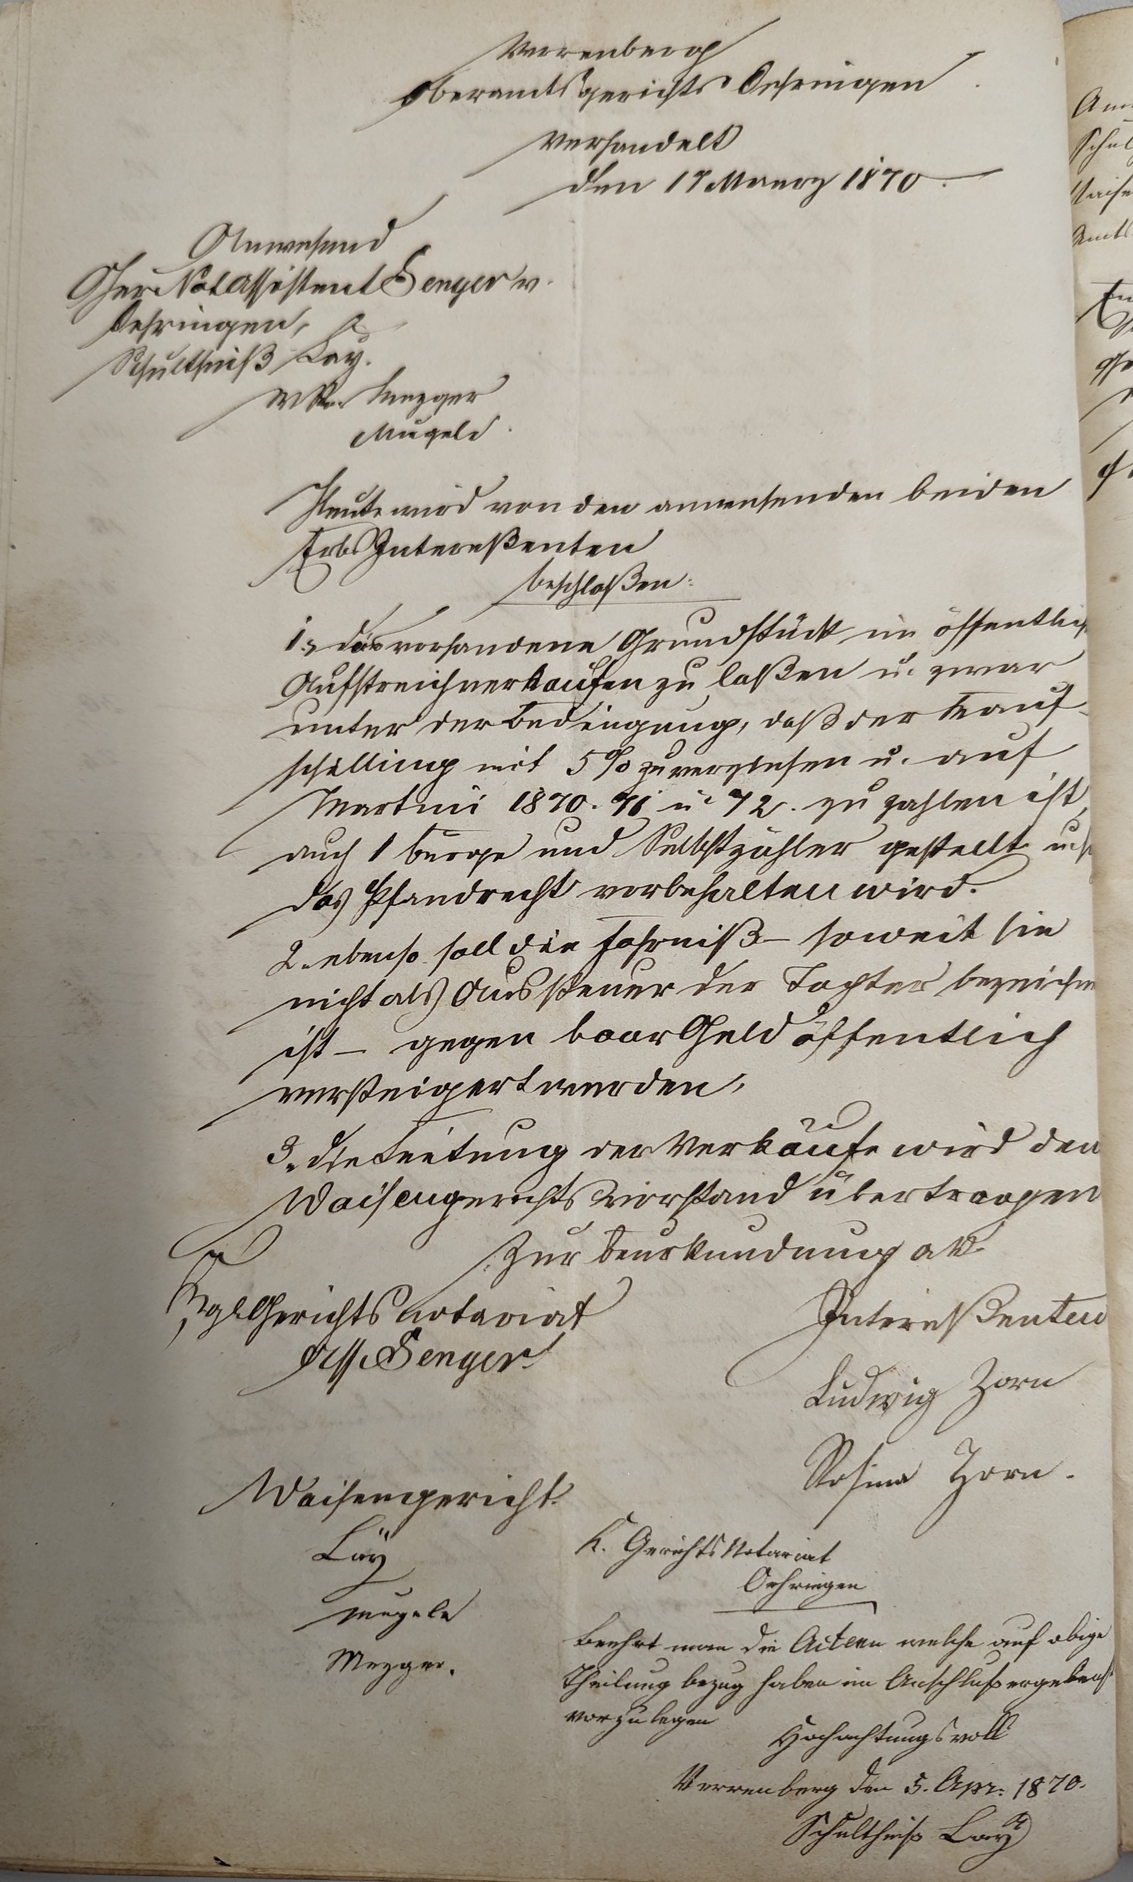 Verrenberg
Oberamtsgerichts Oehringen
Verhandelt
den 17 Maerz 1870.
Anwesend
Herr Not Assistent Senger v.
Oehringen,
Schultheiß Lay.
W. R. Mezger
Mugele.
Heute wird von den anwesenden beiden
Erbs Intereßenten
beschloßen:
1, das vorhandene Grundstück im öffentlich
Aufstreich verkaufen zu laßen u. zwar
unter der Bedingung, daß der Kauf-
schilling mit 5 % zu verzinsen u. auf
Martini 1870. 71 u. 72. zu zahlen ist,
auch 1 Bürge und Selbstzahler gestellt u.
das Pfandrecht vorbehalten wird.
2. ebenso soll die Fahrniß – soweit sie
nicht als Aussteuer der Tochter bezeichn
ist – gegen baar Geld öffentlich
versteigert werden,
3. die Leitung der Verkäufe wird dem
Waisengerichts Vorstand übertragen
Zur Beurkundung
Kgl. Gerichts notariat
Ass. Senger.
Intereßenten
Ludwig Zorn
Rosina Zorn.
Waisengericht.
Läy
Mugele
Mezger.
K. Gerichts Notariat
Oehringen
beehrt man die Acten welche auf obige
Theilung bezug haben im Anschluß ergebenst
vorzulegen
Hochachtungsvoll
Verrenberg den 5. Apr. 1870.
Schultheiß Lay